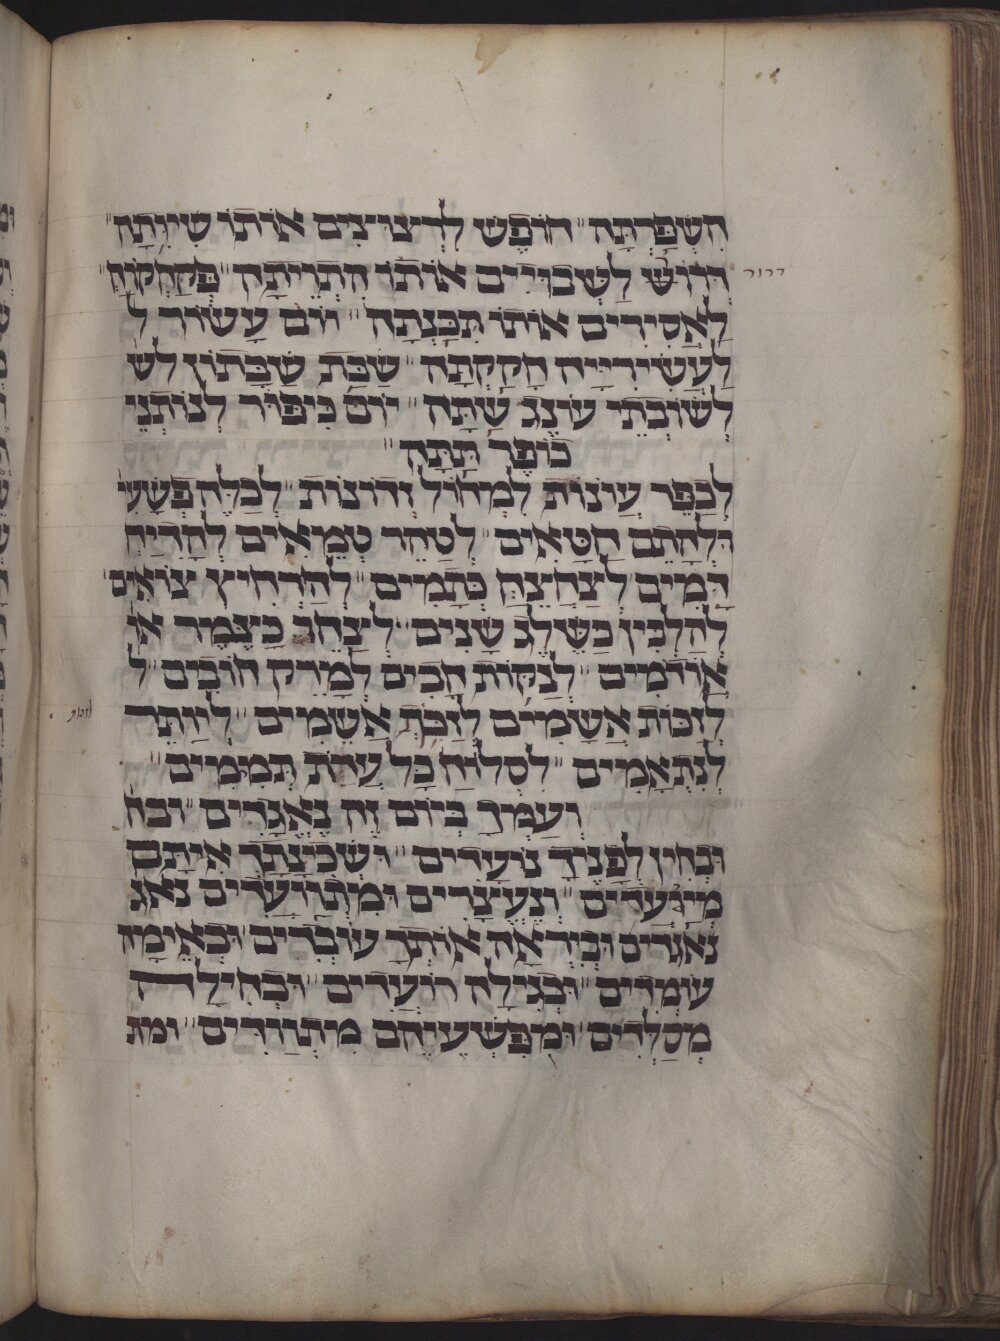 חשפרתה חופש לרצוצים אותו שיותה
דרוש לשבויים אותו חתייתה פקחקוח
דרור
לאסירים אותו תכנתה יום עשור ל
לעשירייה חקקתה שבת שבתון לש
לשובתי עונג שתה יום כיפור לנותני
כופר תתה
לכפר עונות למחול זדונות לכלה פשעי
ולהתם חטאים לטהר טמאים להריח
דמים לצחצח כתמים להרחיץ צואים
להלבין כשלג שנים לצחר כצמר א
אדומים לנקות חבים למרק חובים ל
לזכות אשמים לזכת אשמים ליותר
לזכות
לנתאמים לסלוח כל עונות תמימים
ועמך ביום זה נאגרים ובה
ובחין לפניך נוערים ושכינתך איתם
מינערים ונעצרים ומתוערים נאג
נאגרים וביראה אותך עוברים ובאימה
עומדים ובגילה רוערים ובחילה
מסלדים ומפשעיהם מתוודים ומת